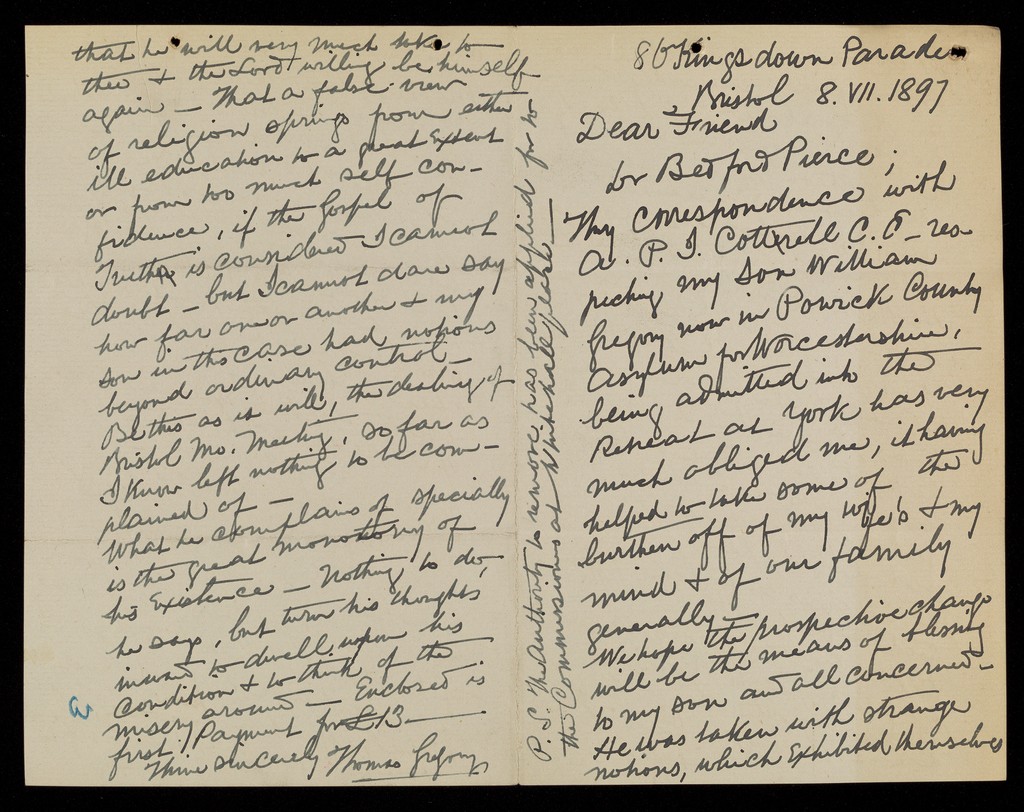 86 Kingsdown Parade
Bristol 8.VII.1897
Dear Friend
Dr Bedford Pierce;
Thy correspondence with
A. P. I. Cotterell C.E. res-
pecting my son William
Gregory now in Powick County
Asylum for Worcestershire,
being admitted into the
Retreat at York has very
much obliged me, it having
helped to take some of the
burthen off of my wife's & my
mind & of our family
generally—
We hope the prospective change
will be the means of blessing
to my son and all concerned—
He was taken with strange
notions, which exhibited themselves
that he will very much take to
thee & the Lord willing be himself
again — That a false view
of religion springs from either
ill education to a great extent
or from too much self con-
fidence, if the Gospel of
Truth is considered I cannot
doubt — but I cannot dare say
how far one or another & my
son in this case had notions
beyond ordinary control—
Be this as it will, the dealing of
Bristol Mo. Meeting, so far as
I know left nothing to be com-
plained of—
What he complains of specially
is the great monotony of
his existence — Nothing to do,
he says, but turn his thoughts
inward to dwell upon his
condition & to think of the
misery around — Enclosed is
first Payment for £13 —
Thine sincerely Thomas Gregory
P.S. The Authority to remove has been applied for to
the Commissioners at Whitehall place—
3